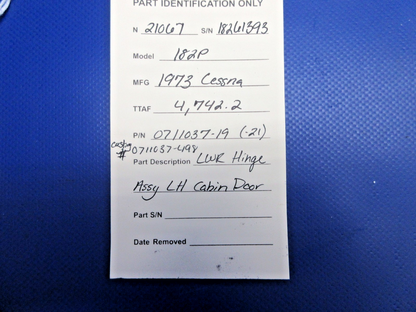 PART IDENTIFICATION ONLY
N 21067 S/N 18261393
Model 182P
MFG 1973 Cessna
TTAF 4,742.2
P/N 0711037-19 (-21)
Casting # 0711037-498
Part Description LWR Hinge
Assy LH Cabin Door
Part S/N
Date Removed